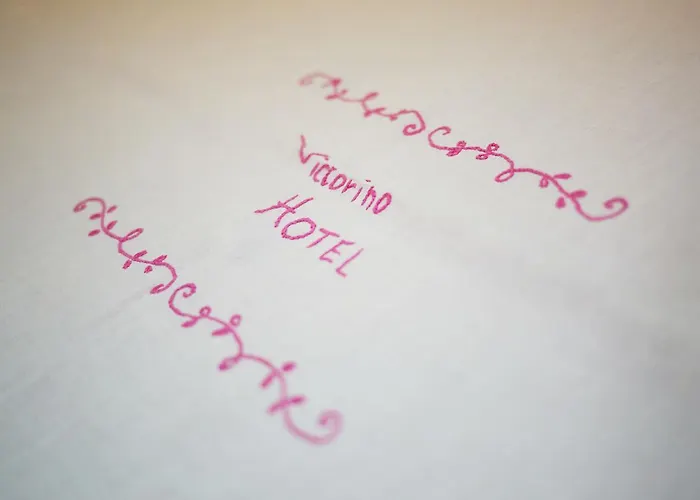 Victorino
HOTEL